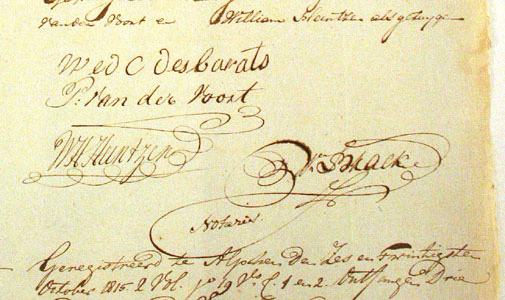 van der Voort en William Heintzen als getuygen
Wed C desbarats
P: van der Voort
WH Huntzen
Notaris
Geregistreerd te Alphen den zes en twintigsten
October 1815. 2 Vol. fo 9 Vo. C. 1 en 2. Ontfangen Drie